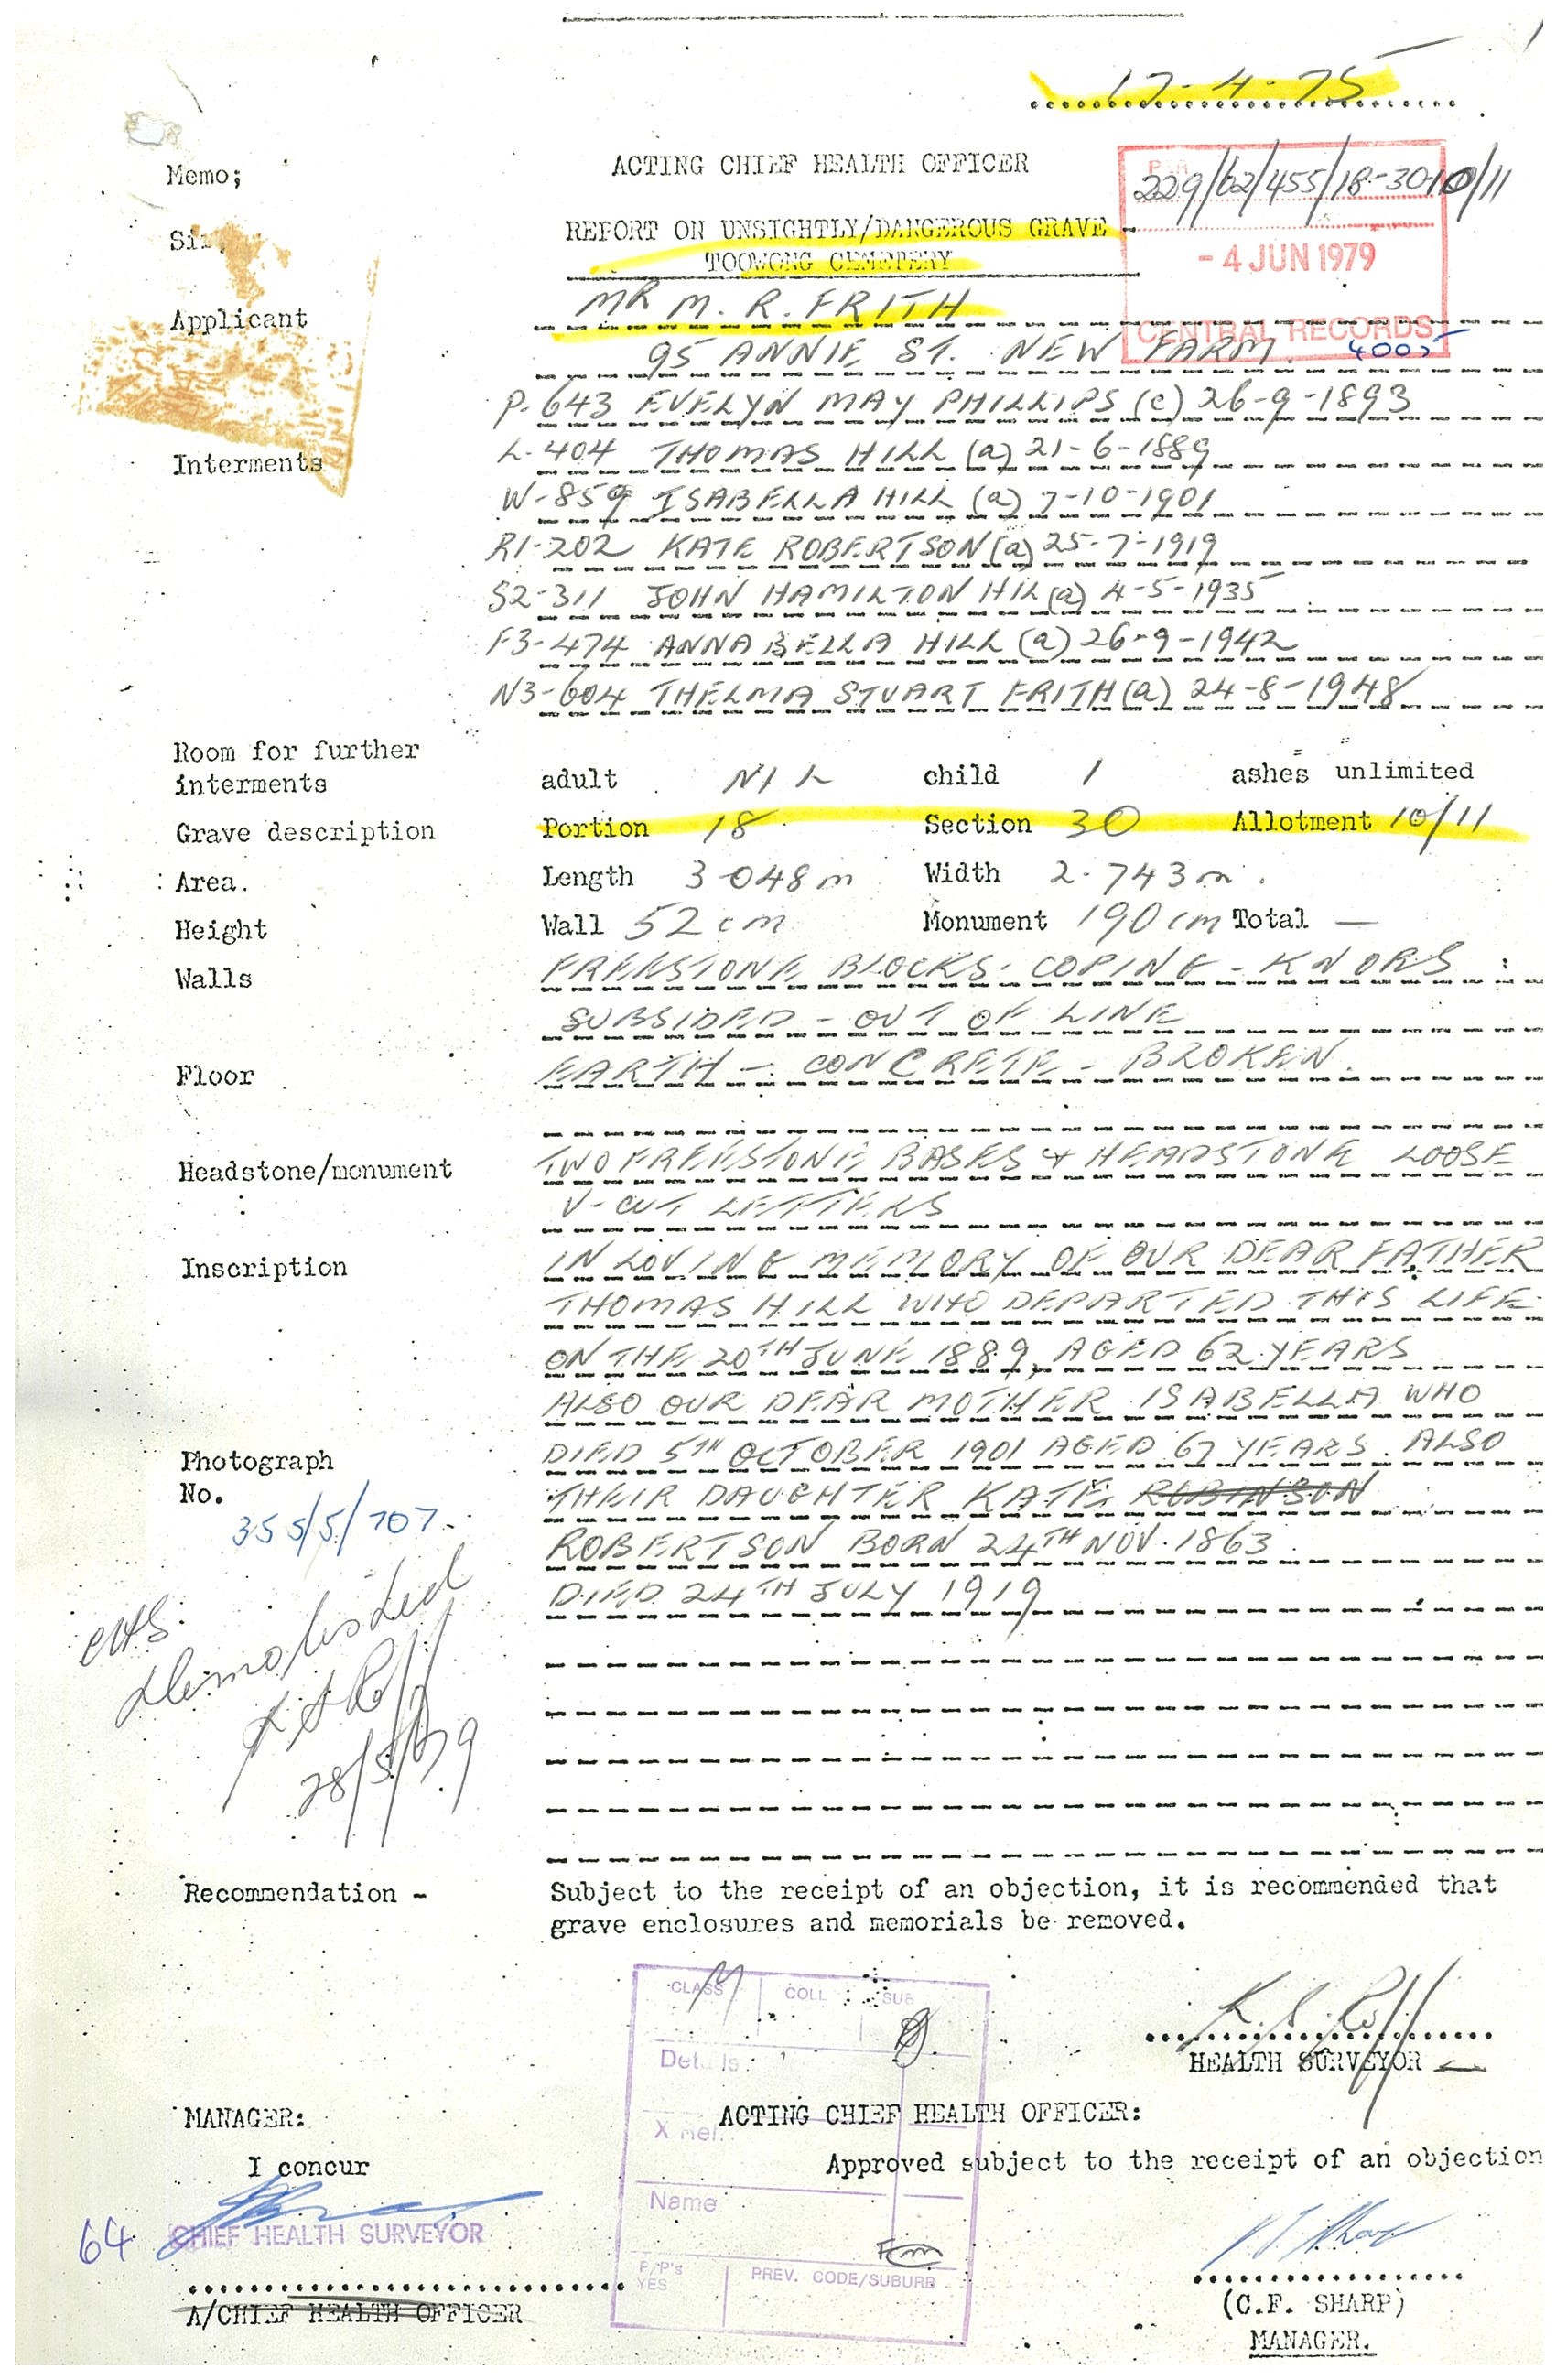 17-4-75
Memo;
ACTING CHIEF HEALTH OFFICER
229/62/455/18-30-10/11
Sir,
REPORT ON UNSIGHTLY/DANGEROUS GRAVE -
TOOWONG CEMETERY
- 4 JUN 1979
CENTRAL RECORDS
Applicant
MR M. R. FRITH
95 ANNIE ST. NEW FARM. 4005
P-643 EVELYN MAY PHILLIPS (c) 26-9-1893
Interments
L-404 THOMAS HILL (a) 21-6-1889
W-859 ISABELLA HILL (a) 7-10-1901
R1-202 KATE ROBERTSON (a) 25-7-1919
S2-311 JOHN HAMILTON HIL (a) 4-5-1935
F3-474 ANNABELLA HILL (a) 26-9-1942
N3-604 THELMA STUART FRITH (a) 24-8-1948
Room for further
interments
adult NIL child 1 ashes unlimited
Grave description
Portion 18 Section 30 Allotment 10/11
Area.
Length 3.048m Width 2.743m.
Height
Wall 52cm Monument 190cm Total —
Walls
FREESTONE BLOCKS - COPING - KNOBS
SUBSIDED - OUT OF LINE
Floor
EARTH - CONCRETE - BROKEN.
Headstone/monument
TWO FREESTONE BASES & HEADSTONE LOOSE
V-CUT LETTERS
Inscription
IN LOVING MEMORY OF OUR DEAR FATHER
THOMAS HILL WHO DEPARTED THIS LIFE
ON THE 20TH JUNE 1889, AGED 62 YEARS
ALSO OUR DEAR MOTHER ISABELLA WHO
DIED 5TH OCTOBER 1901 AGED 67 YEARS. ALSO
THEIR DAUGHTER KATE ROBINSON
ROBERTSON BORN 24TH NOV. 1863.
DIED 24TH JULY 1919
Photograph
No.
355/5/707.
Demolished
28/5/79
Recommendation -
Subject to the receipt of an objection, it is recommended that
grave enclosures and memorials be removed.
CLASS COLL SUB
Details
X Ref.
Name
P/P's
YES
PREV. CODE/SUBURB
HEALTH SURVEYOR
MANAGER:
ACTING CHIEF HEALTH OFFICER:
I concur
Approved subject to the receipt of an objection
64
CHIEF HEALTH SURVEYOR
A/CHIEF HEALTH OFFICER
(C.F. SHARP)
MANAGER.